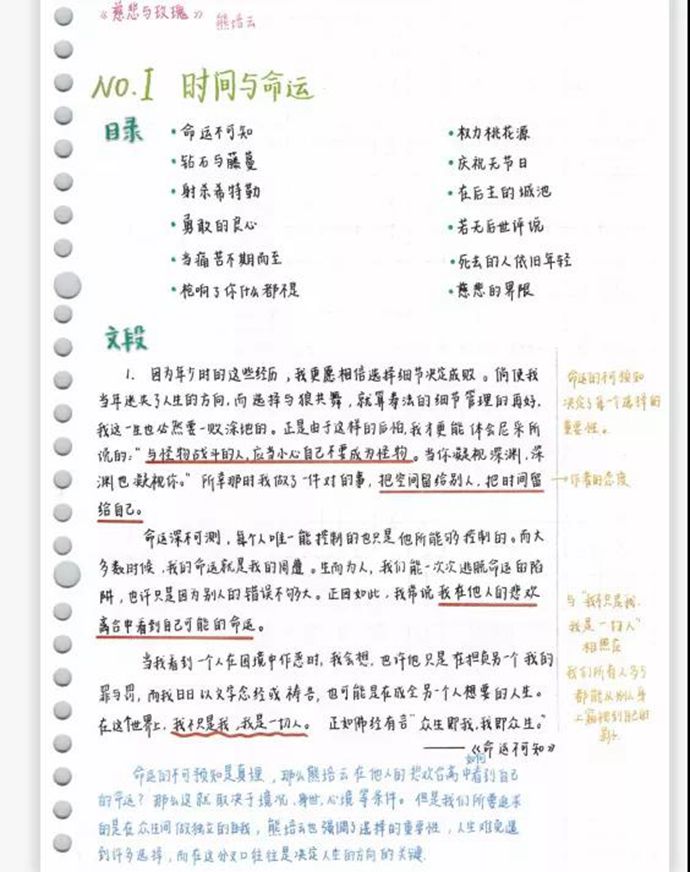 《慈悲与玫瑰》 熊培云
NO.1 时间与命运
目录
·命运不可知 ·权力桃花源
·钻石与藤蔓 ·庆祝无节日
·射杀希特勒 ·在后主的城池
·勇敢的良心 ·若无后世评说
·当痛苦不期而至 ·死去的人依旧年轻
·枪响了你什么都不是 ·慈悲的界限
文段
1. 因为年少时的这些经历,我更愿相信选择细节决定成败。倘使我
当年迷失了人生的方向,而选择与狼共舞,就算寿法的细节管理的再好,
我这一生也必然要一败涂地的。正是由于这样的后怕,我才更能体会尼采所
说的:“与怪物战斗的人,应当小心自己不要成为怪物。当你凝视深渊,深
渊也凝视你。”所幸那时我做了一件对的事,把空间留给别人,把时间留
给自己。
命运深不可测,每个人唯一能控制的也只是他所能够控制的。而大
多数时候,我的命运就是我的周遭。生而为人,我们能一次次逃脱命运的陷
阱,也许只是因为别人的错误不够大。正因如此,我常说我在他人的悲欢
离合中看到自己可能的命运。
当我看到一个人在困境中作恶时,我会想,也许他只是在担负另一个我的
罪与罚,而我日日以文字念经或祷告,也可能是在成全另一个人想要的人生。
在这个世界上,我不只是我,我是一切人。正如佛经有言“众生即我,我即众生。”
——《命运不可知》
命运的不可预知
决定了每一个选择的
重要性。
→作者的态度
与“我不只是我,
我是一切人”
相照应
我们所有人多多
少都能从别人身
上窥探到自己的
影子
命运的不可预知是真理,那么熊培云如何在他人的悲欢合离中看到自己
的命运?那么这就取决于境况、身世、心境等条件。但是我们所要追求
的是在众生间做独立的自我,熊培云也强调了选择的重要性,人生难免遇
到许多选择,而在这分叉口往往是决定人生的方向的关键.